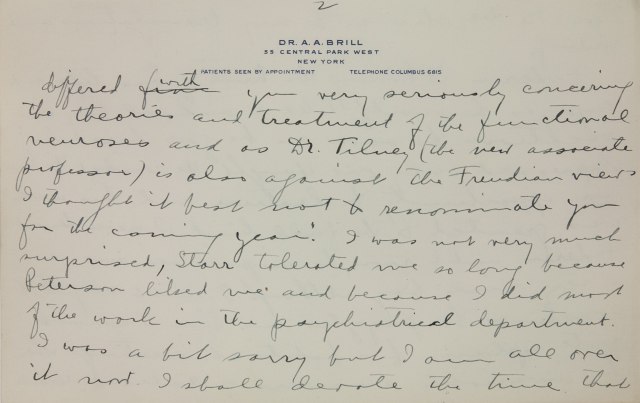 2
DR. A. A. BRILL
55 CENTRAL PARK WEST
NEW YORK
PATIENTS SEEN BY APPOINTMENT TELEPHONE COLUMBUS 6815
differed with you very seriously concering
the theories and treatment of the functional
neuroses and as Dr. Tilney (the new associate
professor) is also against the Freudian views
I thought it best not to renominate you
for the coming year." I was not very much
surprised, Starr tolerated me so long because
Peterson liked me and because I did most
of the work in the psychiatrical department.
I was a bit sorry but I am all over
it now. I shall devote the time that